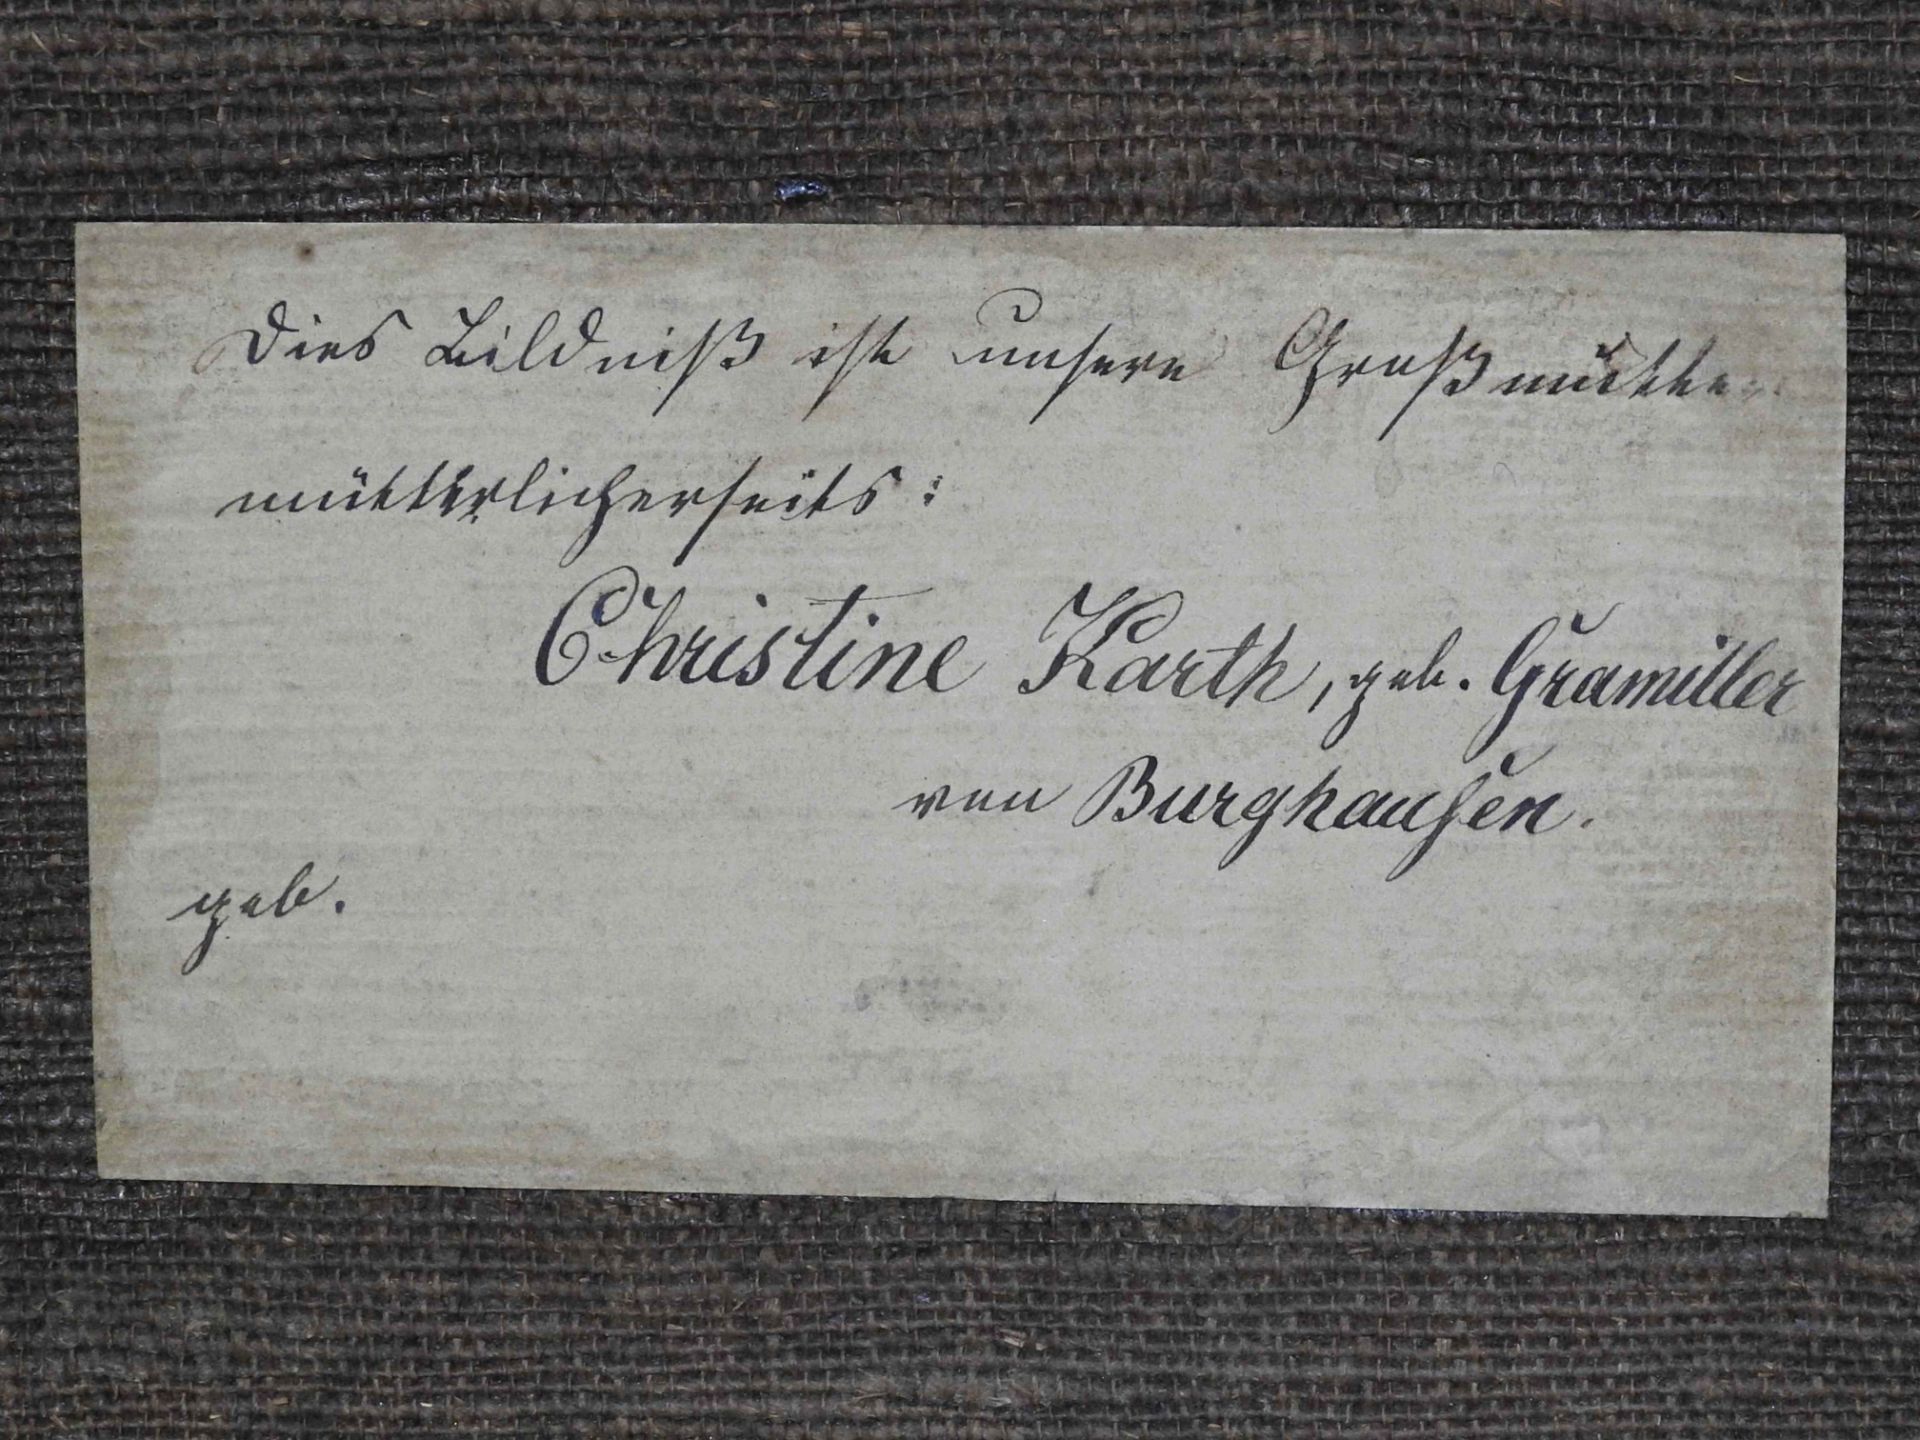 Dies Bildniß ist unsere Großmutter
mütterlicherseits:
Christine Karth, geb. Gramiller
von Burghausen.
geb.